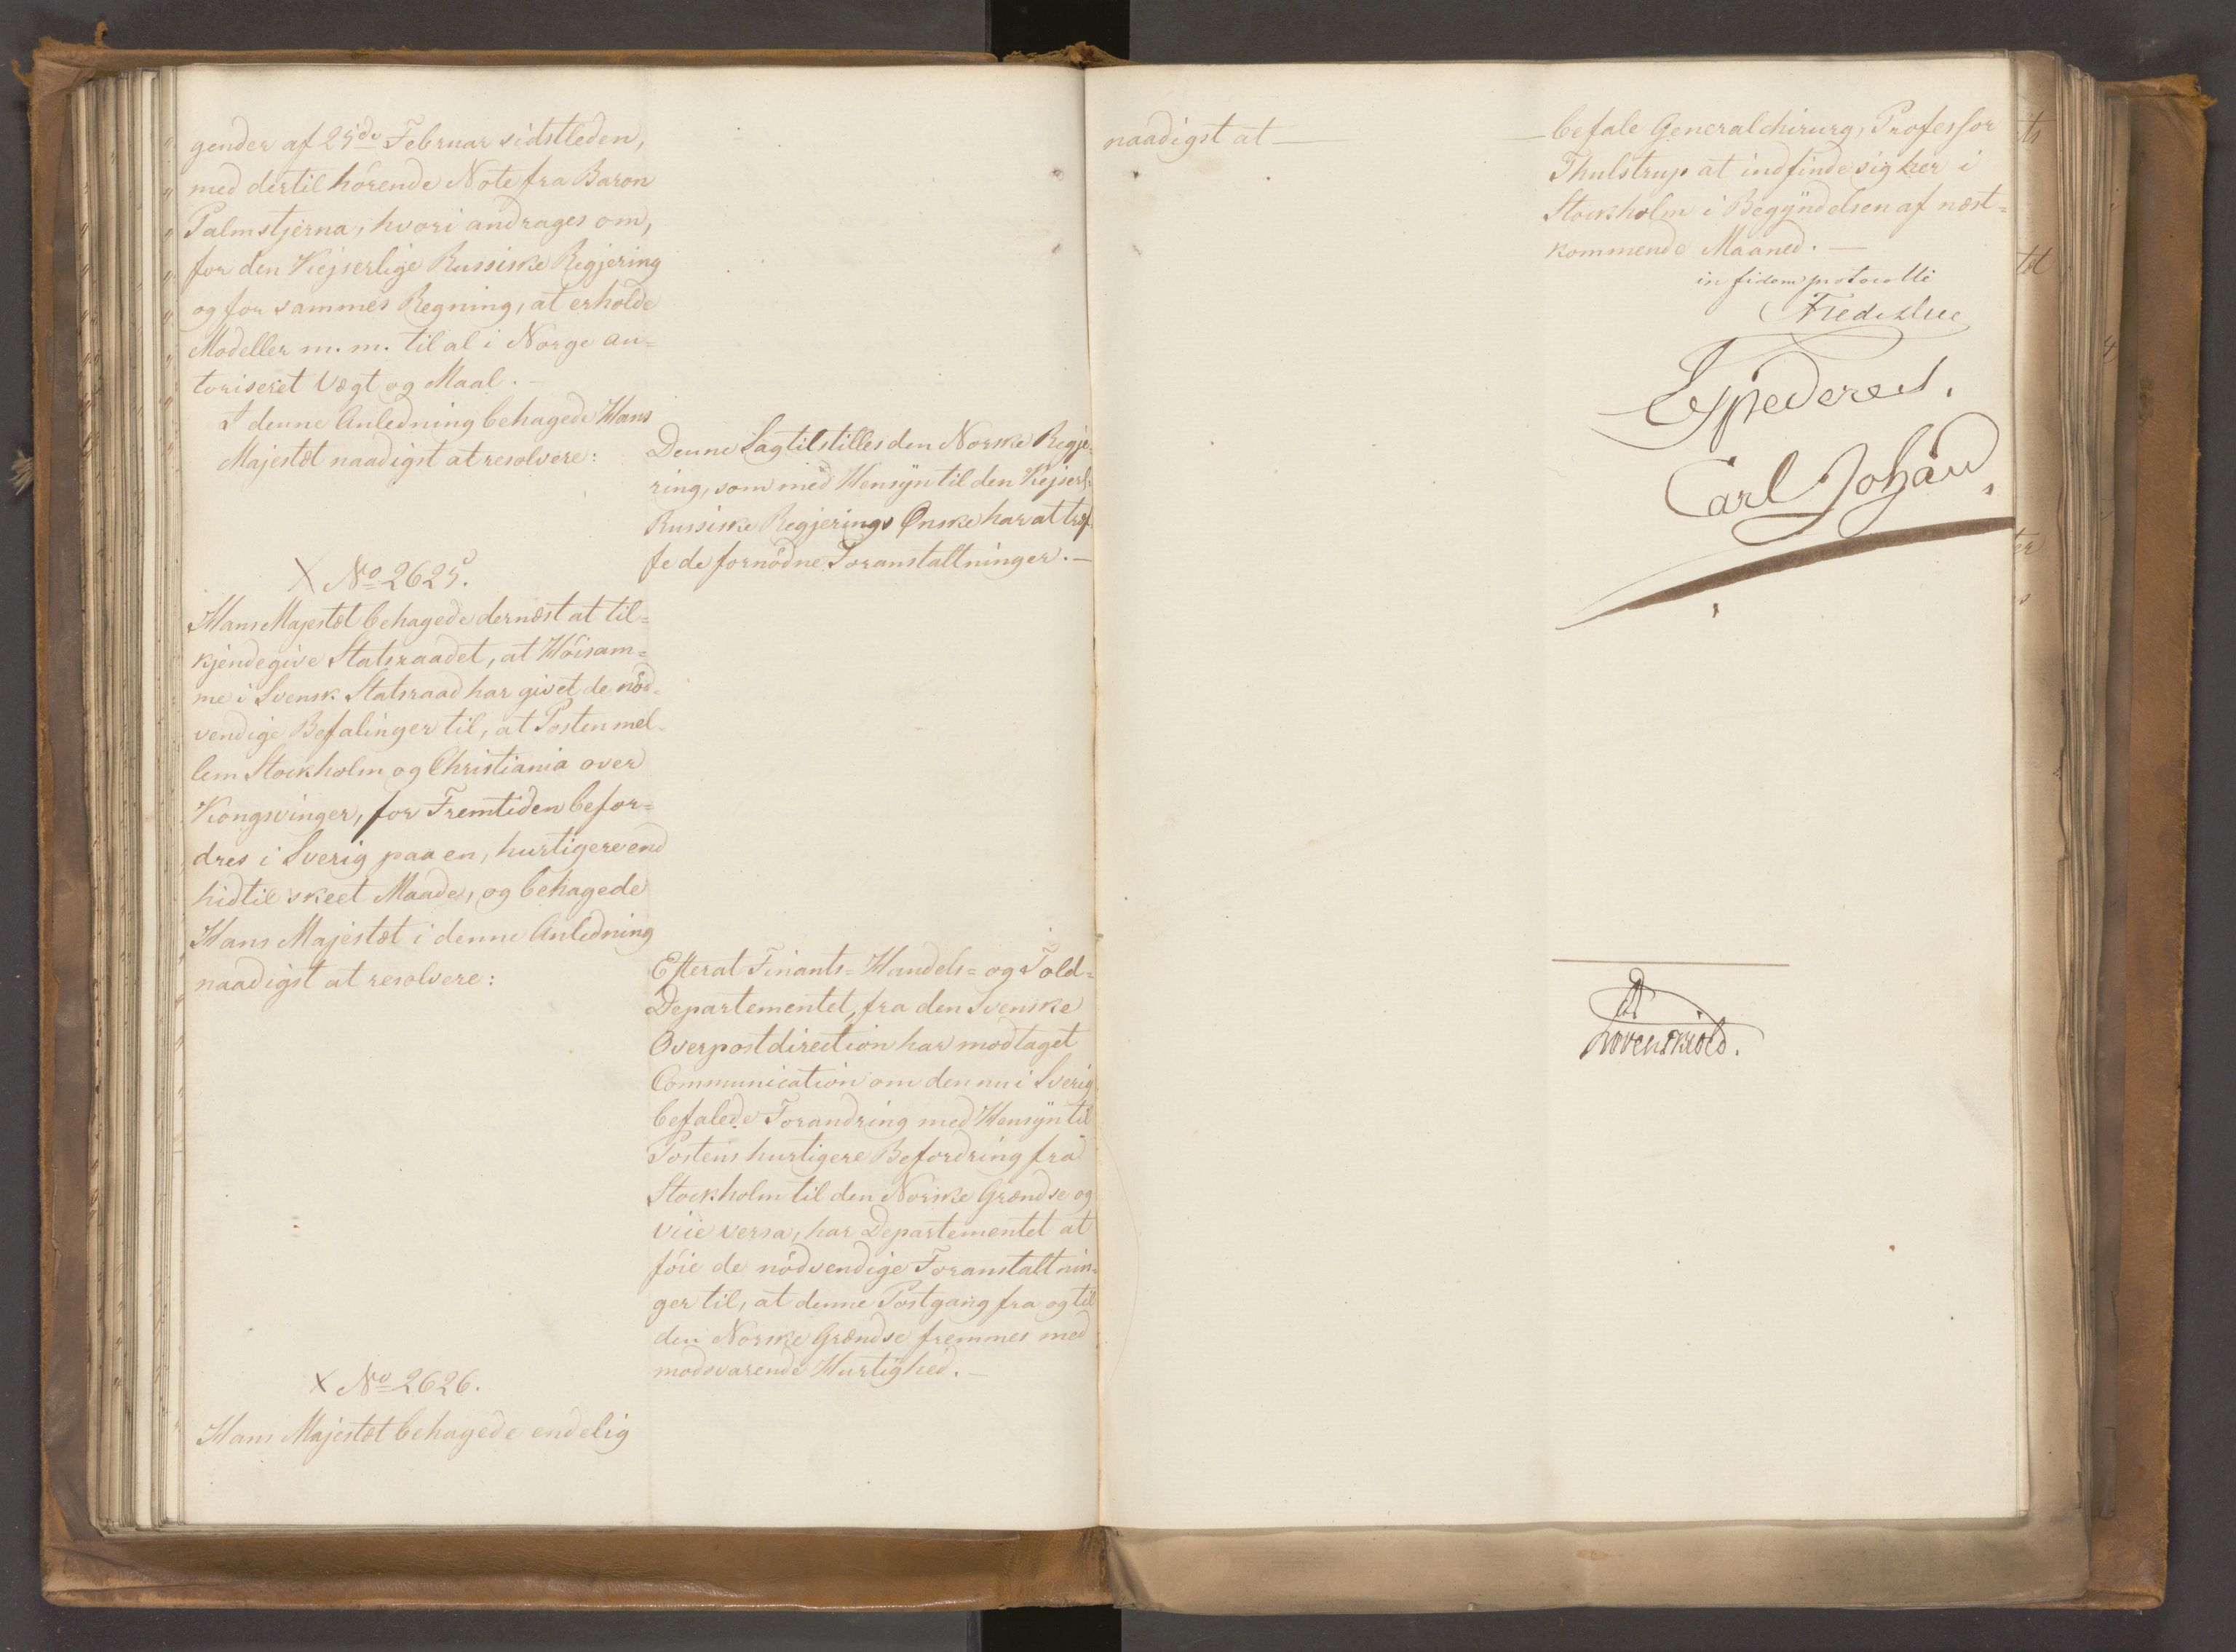 gender af 25de Februar sidstleden,
med dertil hörende Note fra Baron
Palmstjerna, hvori andrages om,
for den Kejserlige Russiske Regjering
og for sammes Regning, at erholde
Modeller m. m. til al i Norge au=
toriseret Vægt og Maal. —
I denne Anledning behagede Hans
Majestæt naadigst at resolvere:
Denne Sag tilstilles den Norske Regje=
ring, som med Hensyn til den Kejserl:
Russiske Regjerings Ønske har at træf=
fe de fornödne Foranstaltninger. —
X No 2625.
Hans Majestæt behagede dernæst at til=
kjendegive Statsraadet, at Höisam=
me i Svensk Statsraad har givet de nöd=
vendige Befalinger til, at Posten mel=
lem Stockholm og Christiania over
Kongsvinger, for Fremtiden befor=
dres i Sverig paa en, hurtigere end
hidtil skeet Maade, og behagede
Hans Majestæt i denne Anledning
naadigst at resolvere:
Efterat Finants= Handels= og Told=
Departementet, fra den Svenske
Overpostdirection har modtaget
Communication om den nu i Sverig
befalede Forandring med Hensyn til
Postens hurtigere Befordring fra
Stockholm til den Norske Grændse og
vice versa, har Departementet at
föie de nödvendige Foranstaltnin=
ger til, at denne Postgang fra og til
den Norske Grændse fremmes med
modsvarende Hurtighed. —
X No 2626.
Hans Majestæt behagede endelig
naadigst at —
— befale Generalchirurg, Professor
Thulstrup at indfinde sig her i
Stockholm i Begyndelsen af næst=
kommende Maaned. —
in fidem protocolli
Fred. Due
Expederes.
Carl Johan
Løvenskiold.